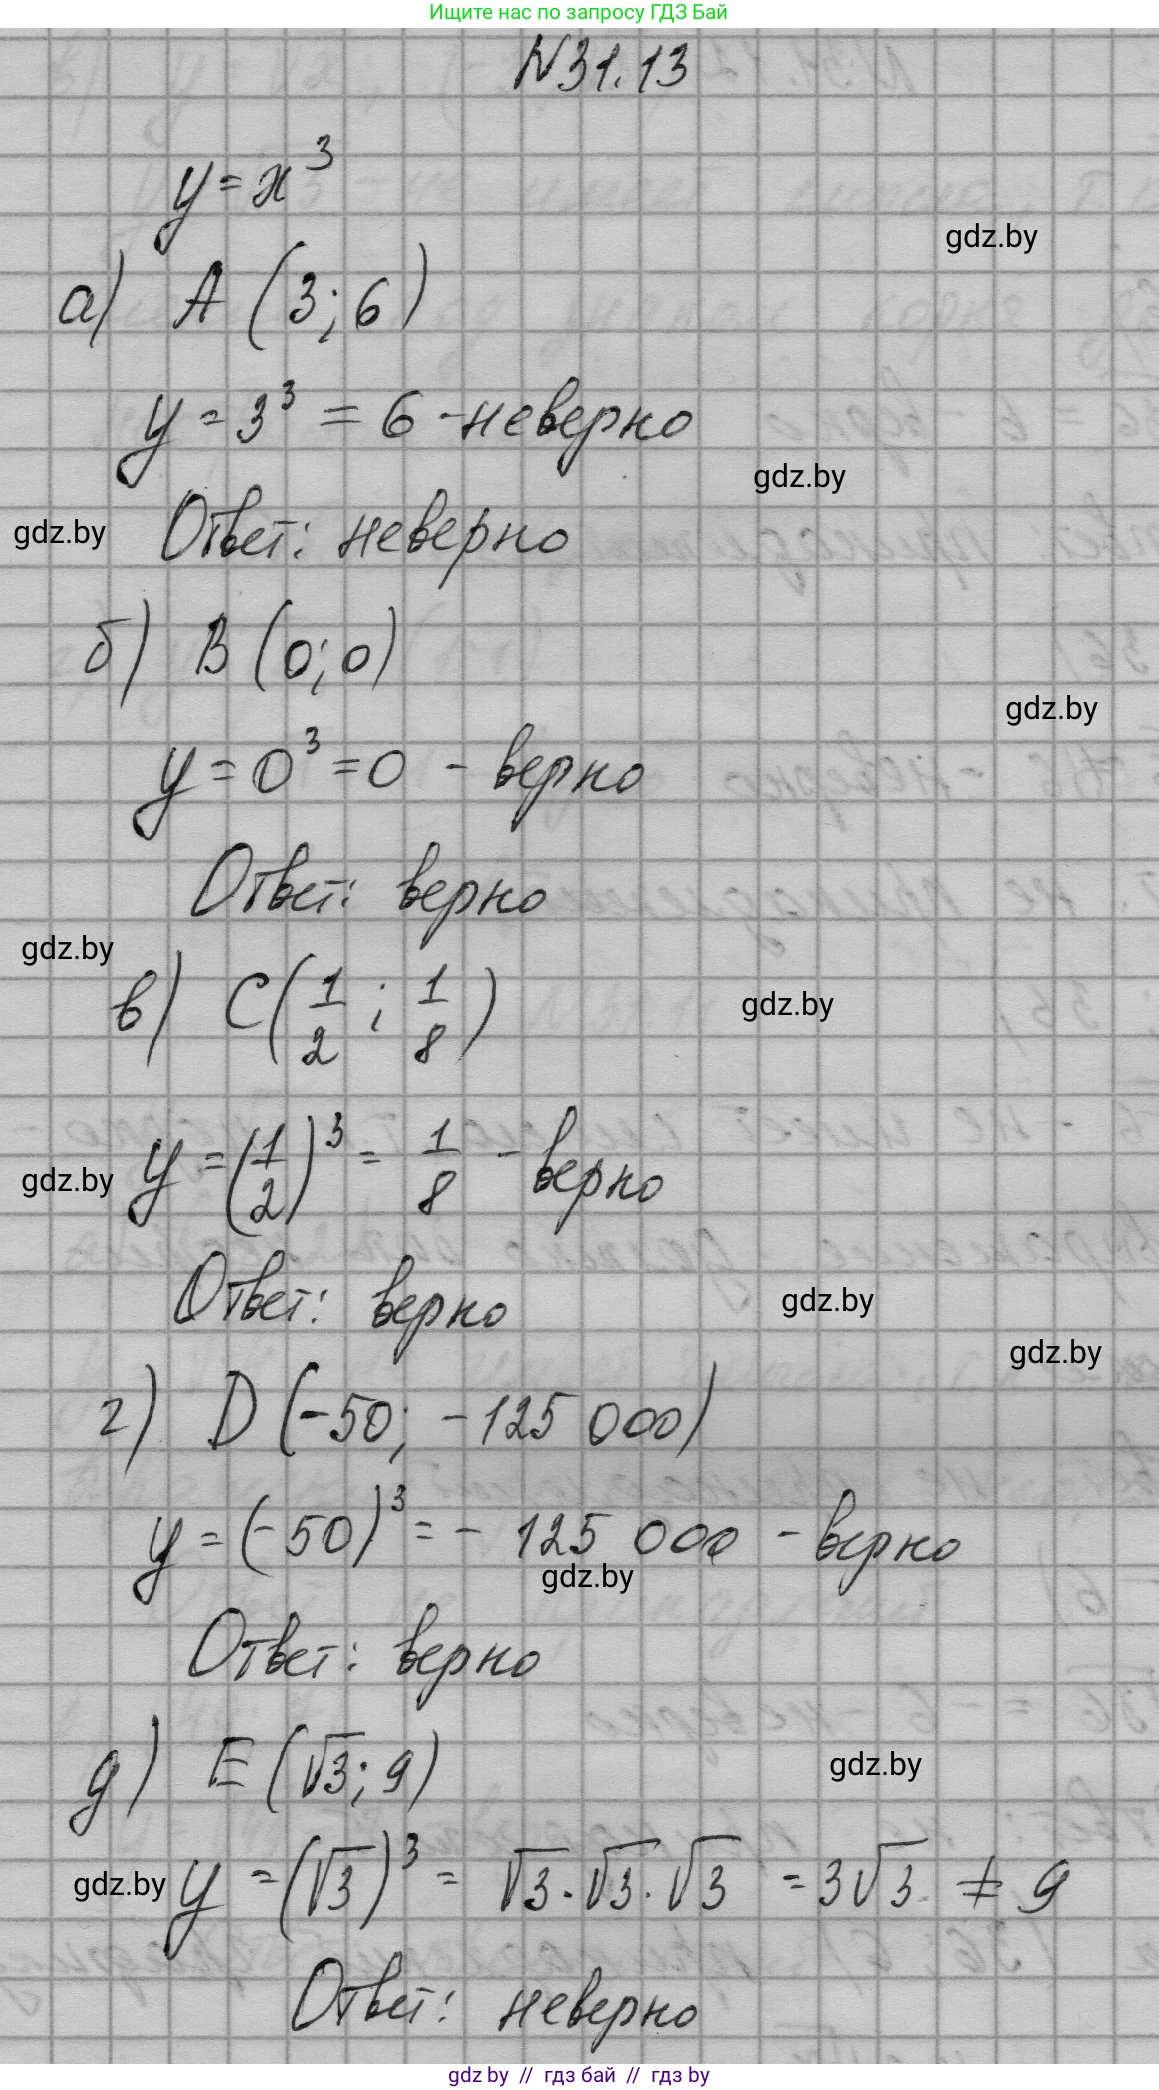 Ищите нас по запросу ГДЗ Бай
N31.13
y = x³
gdz.by
а) A (3; 6)
y = 3³ = 6 - неверно
gdz.by
gdz.by Ответ: неверно
б) B (0; 0)
gdz.by
y = 0³ = 0 - верно
Ответ: верно
gdz.by
в) C (1/2 ; 1/8)
gdz.by
y = (1/2)³ = 1/8 - верно
gdz.by
Ответ: верно
gdz.by
gdz.by
г) D (-50; -125 000)
y = (-50)³ = - 125 000 - верно
gdz.by
Ответ: верно
д) E (√3; 9)
gdz.by
y = (√3)³ = √3 · √3 · √3 = 3√3 ≠ 9
gdz.by
Ответ: неверно
gdz by // гдз бай // гдз by